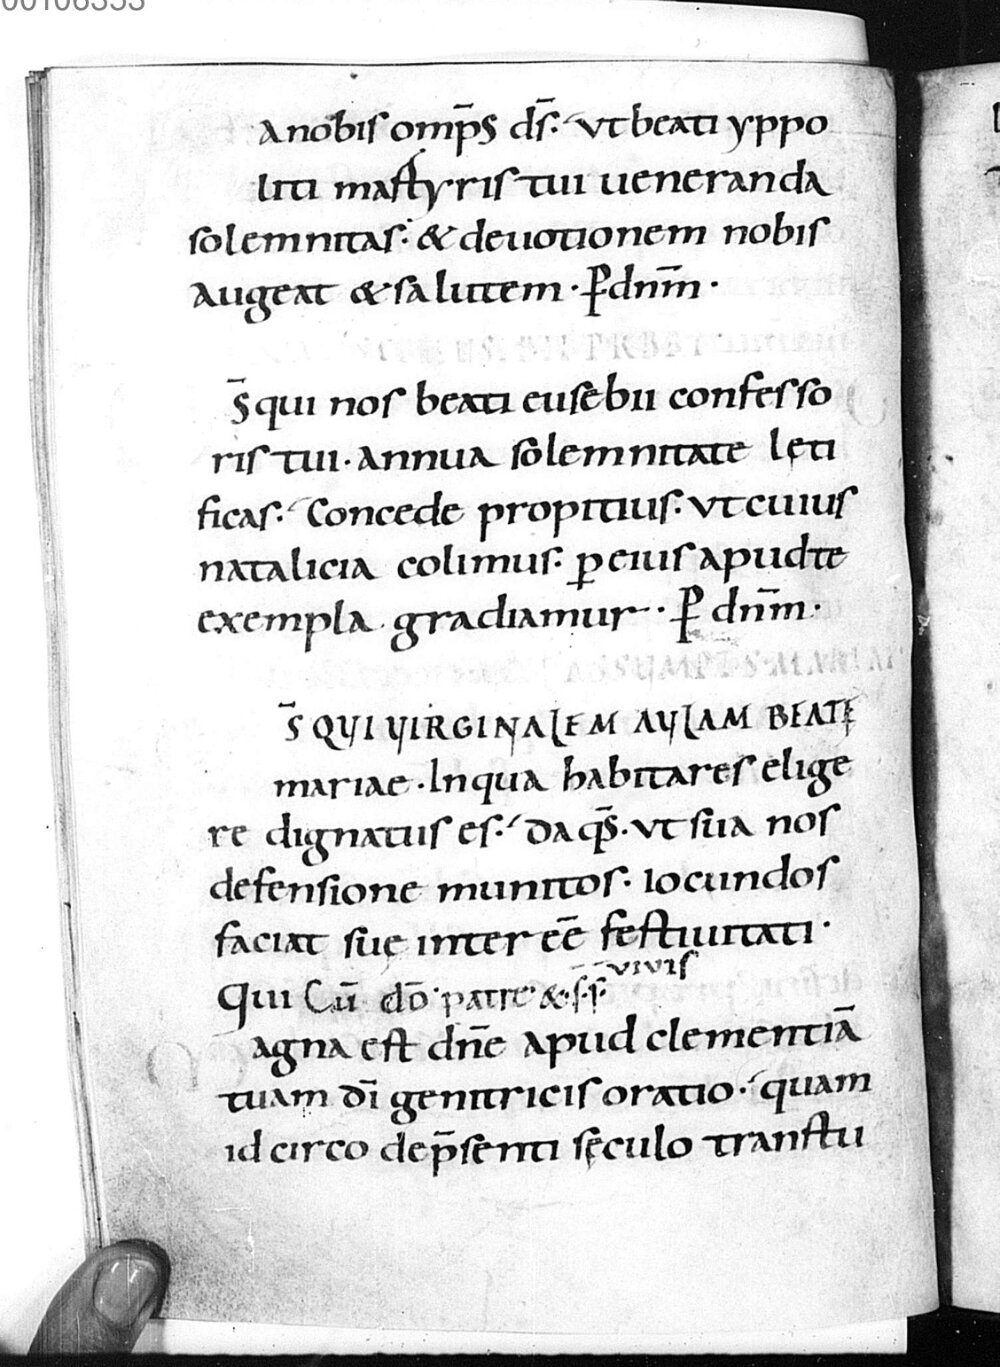 00106353
a nobis omp̄s ds̄· ut beati yppo
liti martyris tui ueneranda
solemnitas· & deuotionem nobis
augeat & salutem· P̄ dnm̄·
S̄ qui nos beati eusebii confesso
ris tui· annua solemnitate lęti
ficas· Concede propitius· ut cuius
natalicia colimus· ꝑ eius apud te
exempla gradiamur· P̄ dnm̄·
S̄ QUI UIRGINALEM AULAM BEATĘ
mariae· In qua habitares elige
re dignatus es· da qs̄· ut sua nos
defensione munitos· iocundos
faciat suę interee᷄ festiuitati·
uiuis
Qui Cū dō patre &·s·s̄·
agna est dn̄e apud clementiā
tuam dī genitricis oratio· quam
id circo dep̄senti sęculo transtu